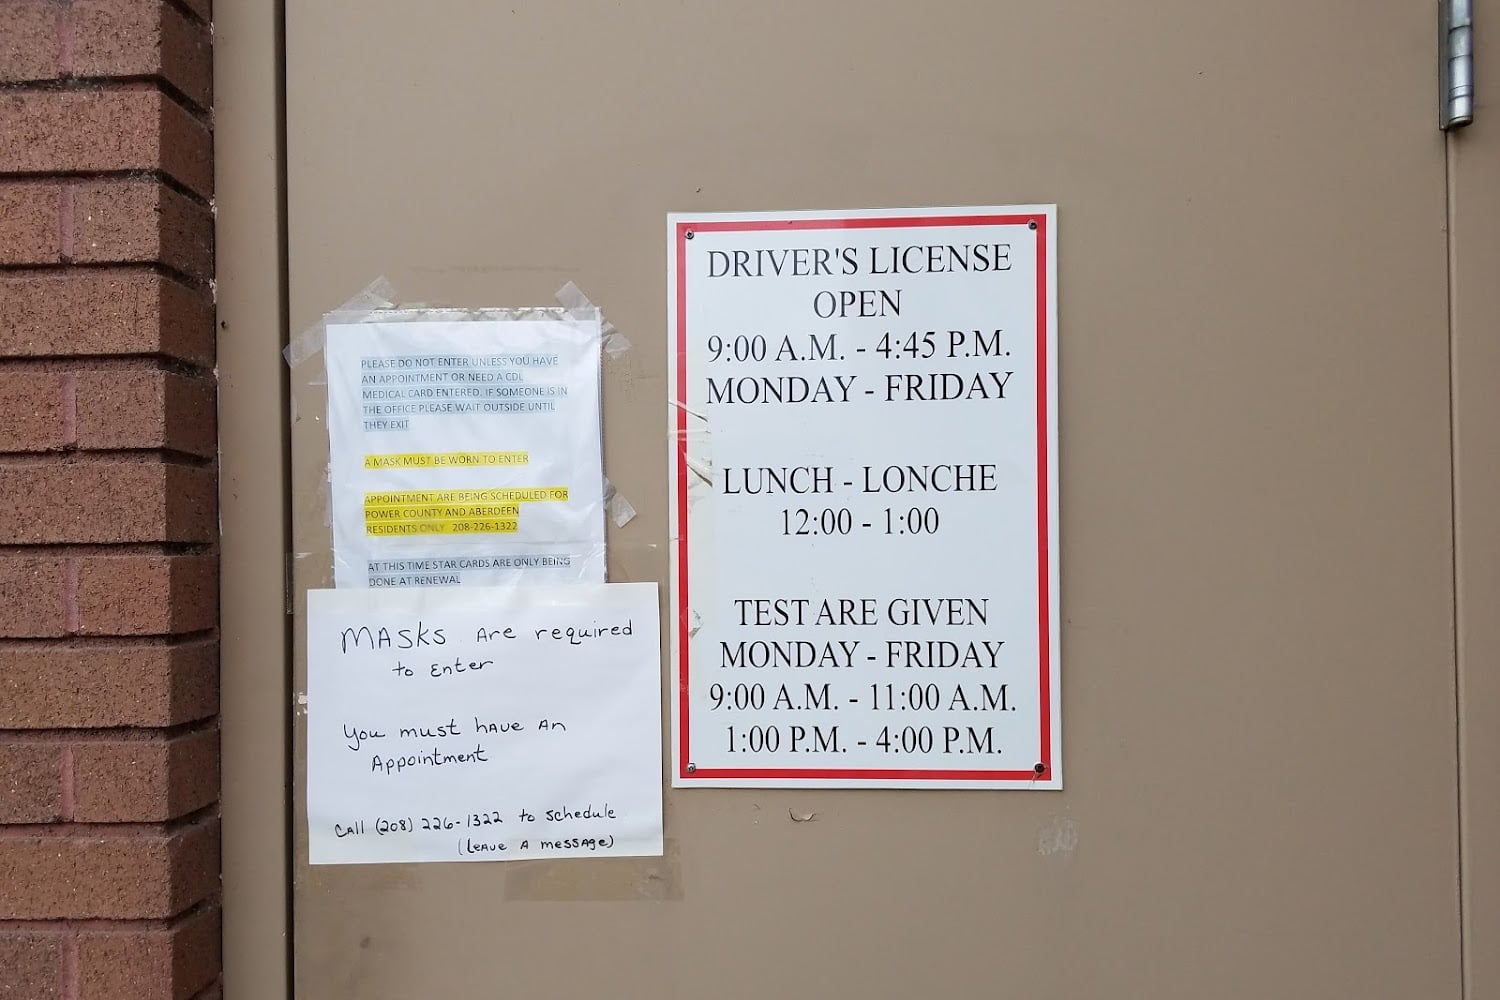 PLEASE DO NOT ENTER UNLESS YOU HAVE
AN APPOINTMENT OR NEED A CDL
MEDICAL CARD ENTERED. IF SOMEONE IS IN
THE OFFICE PLEASE WAIT OUTSIDE UNTIL
THEY EXIT
A MASK MUST BE WORN TO ENTER
APPOINTMENT ARE BEING SCHEDULED FOR
POWER COUNTY AND ABERDEEN
RESIDENTS ONLY 208-226-1322
AT THIS TIME STAR CARDS ARE ONLY BEING
DONE AT RENEWAL
MASKS Are required
to Enter
You must have An
Appointment
Call (208) 226-1322 to schedule
(Leave A message)
DRIVER'S LICENSE
OPEN
9:00 A.M. - 4:45 P.M.
MONDAY - FRIDAY
LUNCH - LONCHE
12:00 - 1:00
TEST ARE GIVEN
MONDAY - FRIDAY
9:00 A.M. - 11:00 A.M.
1:00 P.M. - 4:00 P.M.